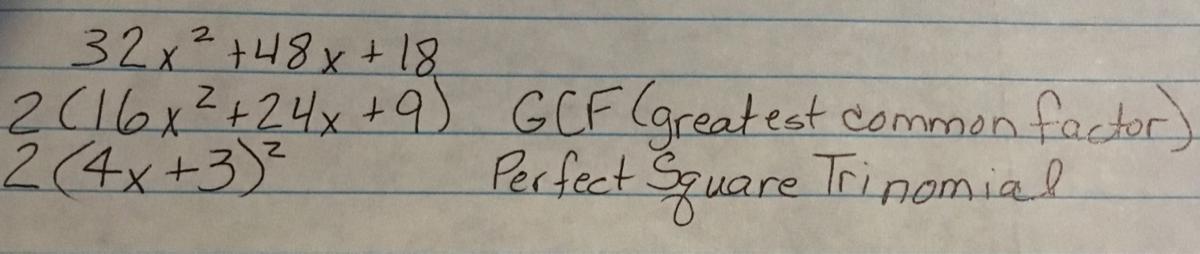 32x² + 48x + 18
2(16x² + 24x + 9) GCF (greatest common factor)
2(4x + 3)² Perfect Square Trinomial